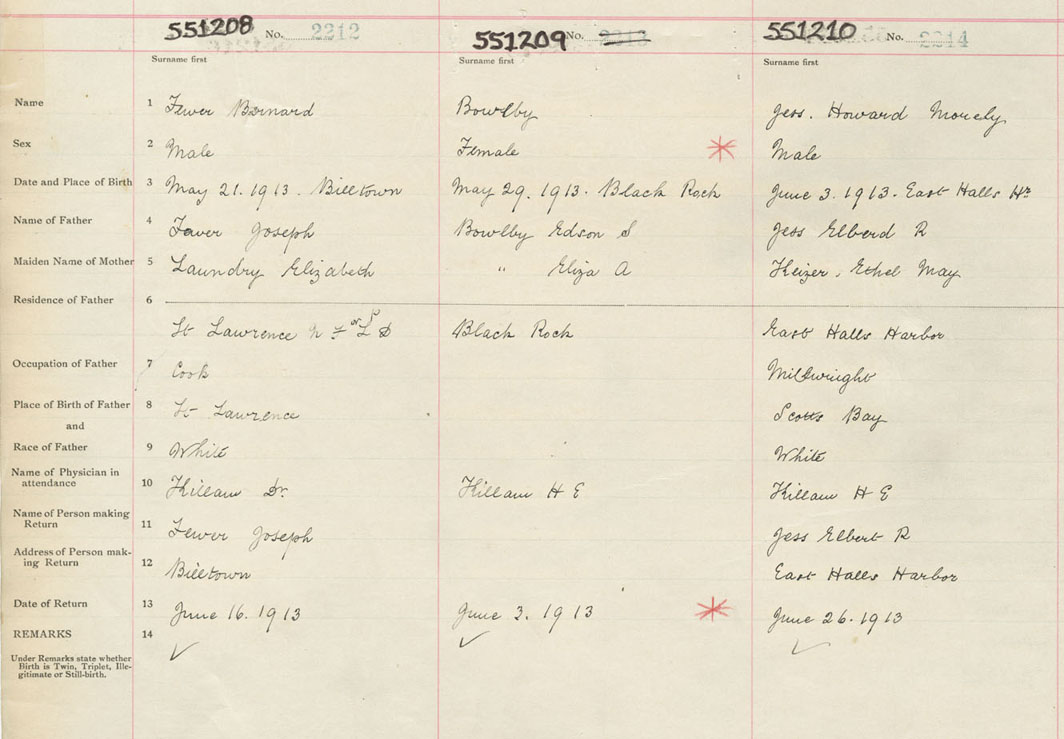 551208 No. 2212 551209 No. 2213 551210 No. 2214
Surname first Surname first Surname first
Name 1 Fewer Bernard Bowlby Jess. Howard Morely
Sex 2 Male Female Male
Date and Place of Birth 3 May 21. 1913. Billtown May 29. 1913. Black Rock June 3. 1913. East Halls Hr
Name of Father 4 Fewer Joseph Bowlby Edson S Jess Elberd R
Maiden Name of Mother 5 Laundry Elizabeth " Eliza A Keizer, Ethel May
Residence of Father 6
St Lawrence N F or L D Black Rock East Halls Harbor
Occupation of Father 7 Cook Millwright
Place of Birth of Father 8 St Lawrence Scotts Bay
and
Race of Father 9 White White
Name of Physician in
attendance 10 Killam Dr. Killam H E Killam H E
Name of Person making
Return 11 Fewer Joseph Jess Elbert R
Address of Person mak-
ing Return 12 Billtown East Halls Harbor
Date of Return 13 June 16. 1913 June 2. 1913 June 26. 1913
REMARKS 14
Under Remarks state whether
Birth is Twin, Triplet, Ille-
gitimate or Still-birth.